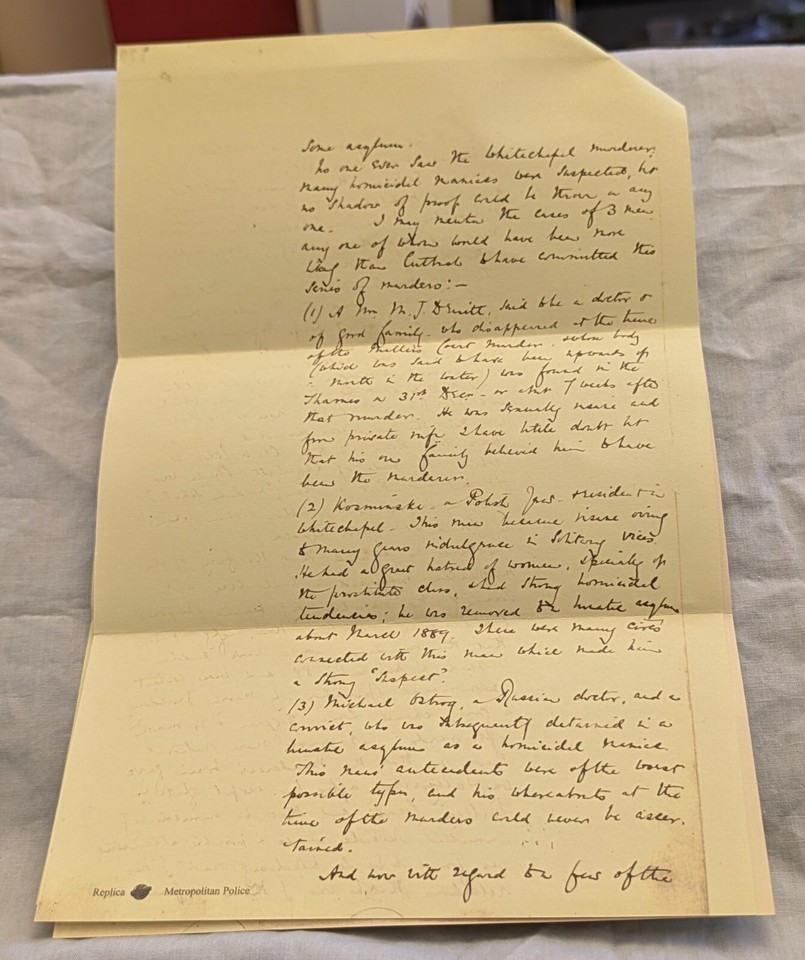 some asylum.
No one ever saw the Whitechapel murderer,
many homicidal maniacs were suspected, but
no shadow of proof could be thrown on any
one. I may mention the cases of 3 men
any one of whom would have been more
likely than Cutbush to have committed this
series of murders:—
(1) A Mr M. J. Druitt, said to be a doctor &
of good family — who disappeared at the time
of the Miller's Court murder, whose body
(which was said to have been upwards of
a month in the water) was found in the
Thames on 31st Decr — or about 7 weeks after
that murder. He was sexually insane and
from private inf. I have little doubt but
that his own family believed him to have
been the murderer.
(2) Kosminski — a Polish Jew — & resident in
Whitechapel. This man became insane owing
to many years indulgence in solitary vices.
He had a great hatred of women, specially of
the prostitute class, & had strong homicidal
tendencies; he was removed to a lunatic asylum
about March 1889. There were many circs
connected with this man which made him
a strong "suspect".
(3) Michael Ostrog, a Russian doctor, and a
convict, who was subsequently detained in a
lunatic asylum as a homicidal maniac.
This man's antecedents were of the worst
possible type, and his whereabouts at the
time of the murders could never be ascer-
tained.
And now with regard to a few of the
Replica Metropolitan Police